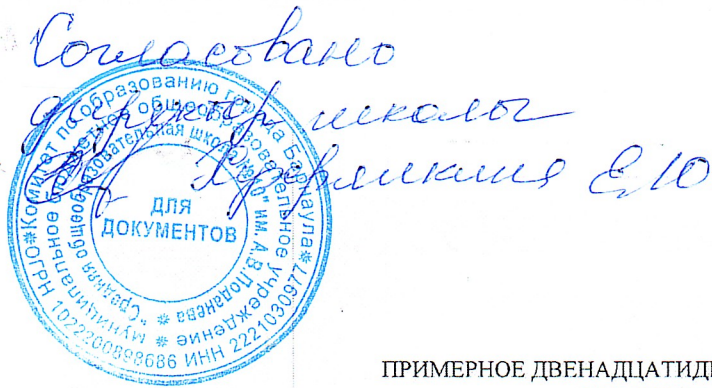 Согласовано
директор школы
Е.Ю
Комитет по образованию города Барнаула
муниципальное бюджетное общеобразовательное учреждение
"Средняя общеобразовательная школа №
им. А.В.Поданева"
ОГРН 1022200898686 ИНН 2221030977
ДЛЯ
ДОКУМЕНТОВ
ПРИМЕРНОЕ ДВЕНАДЦАТИД